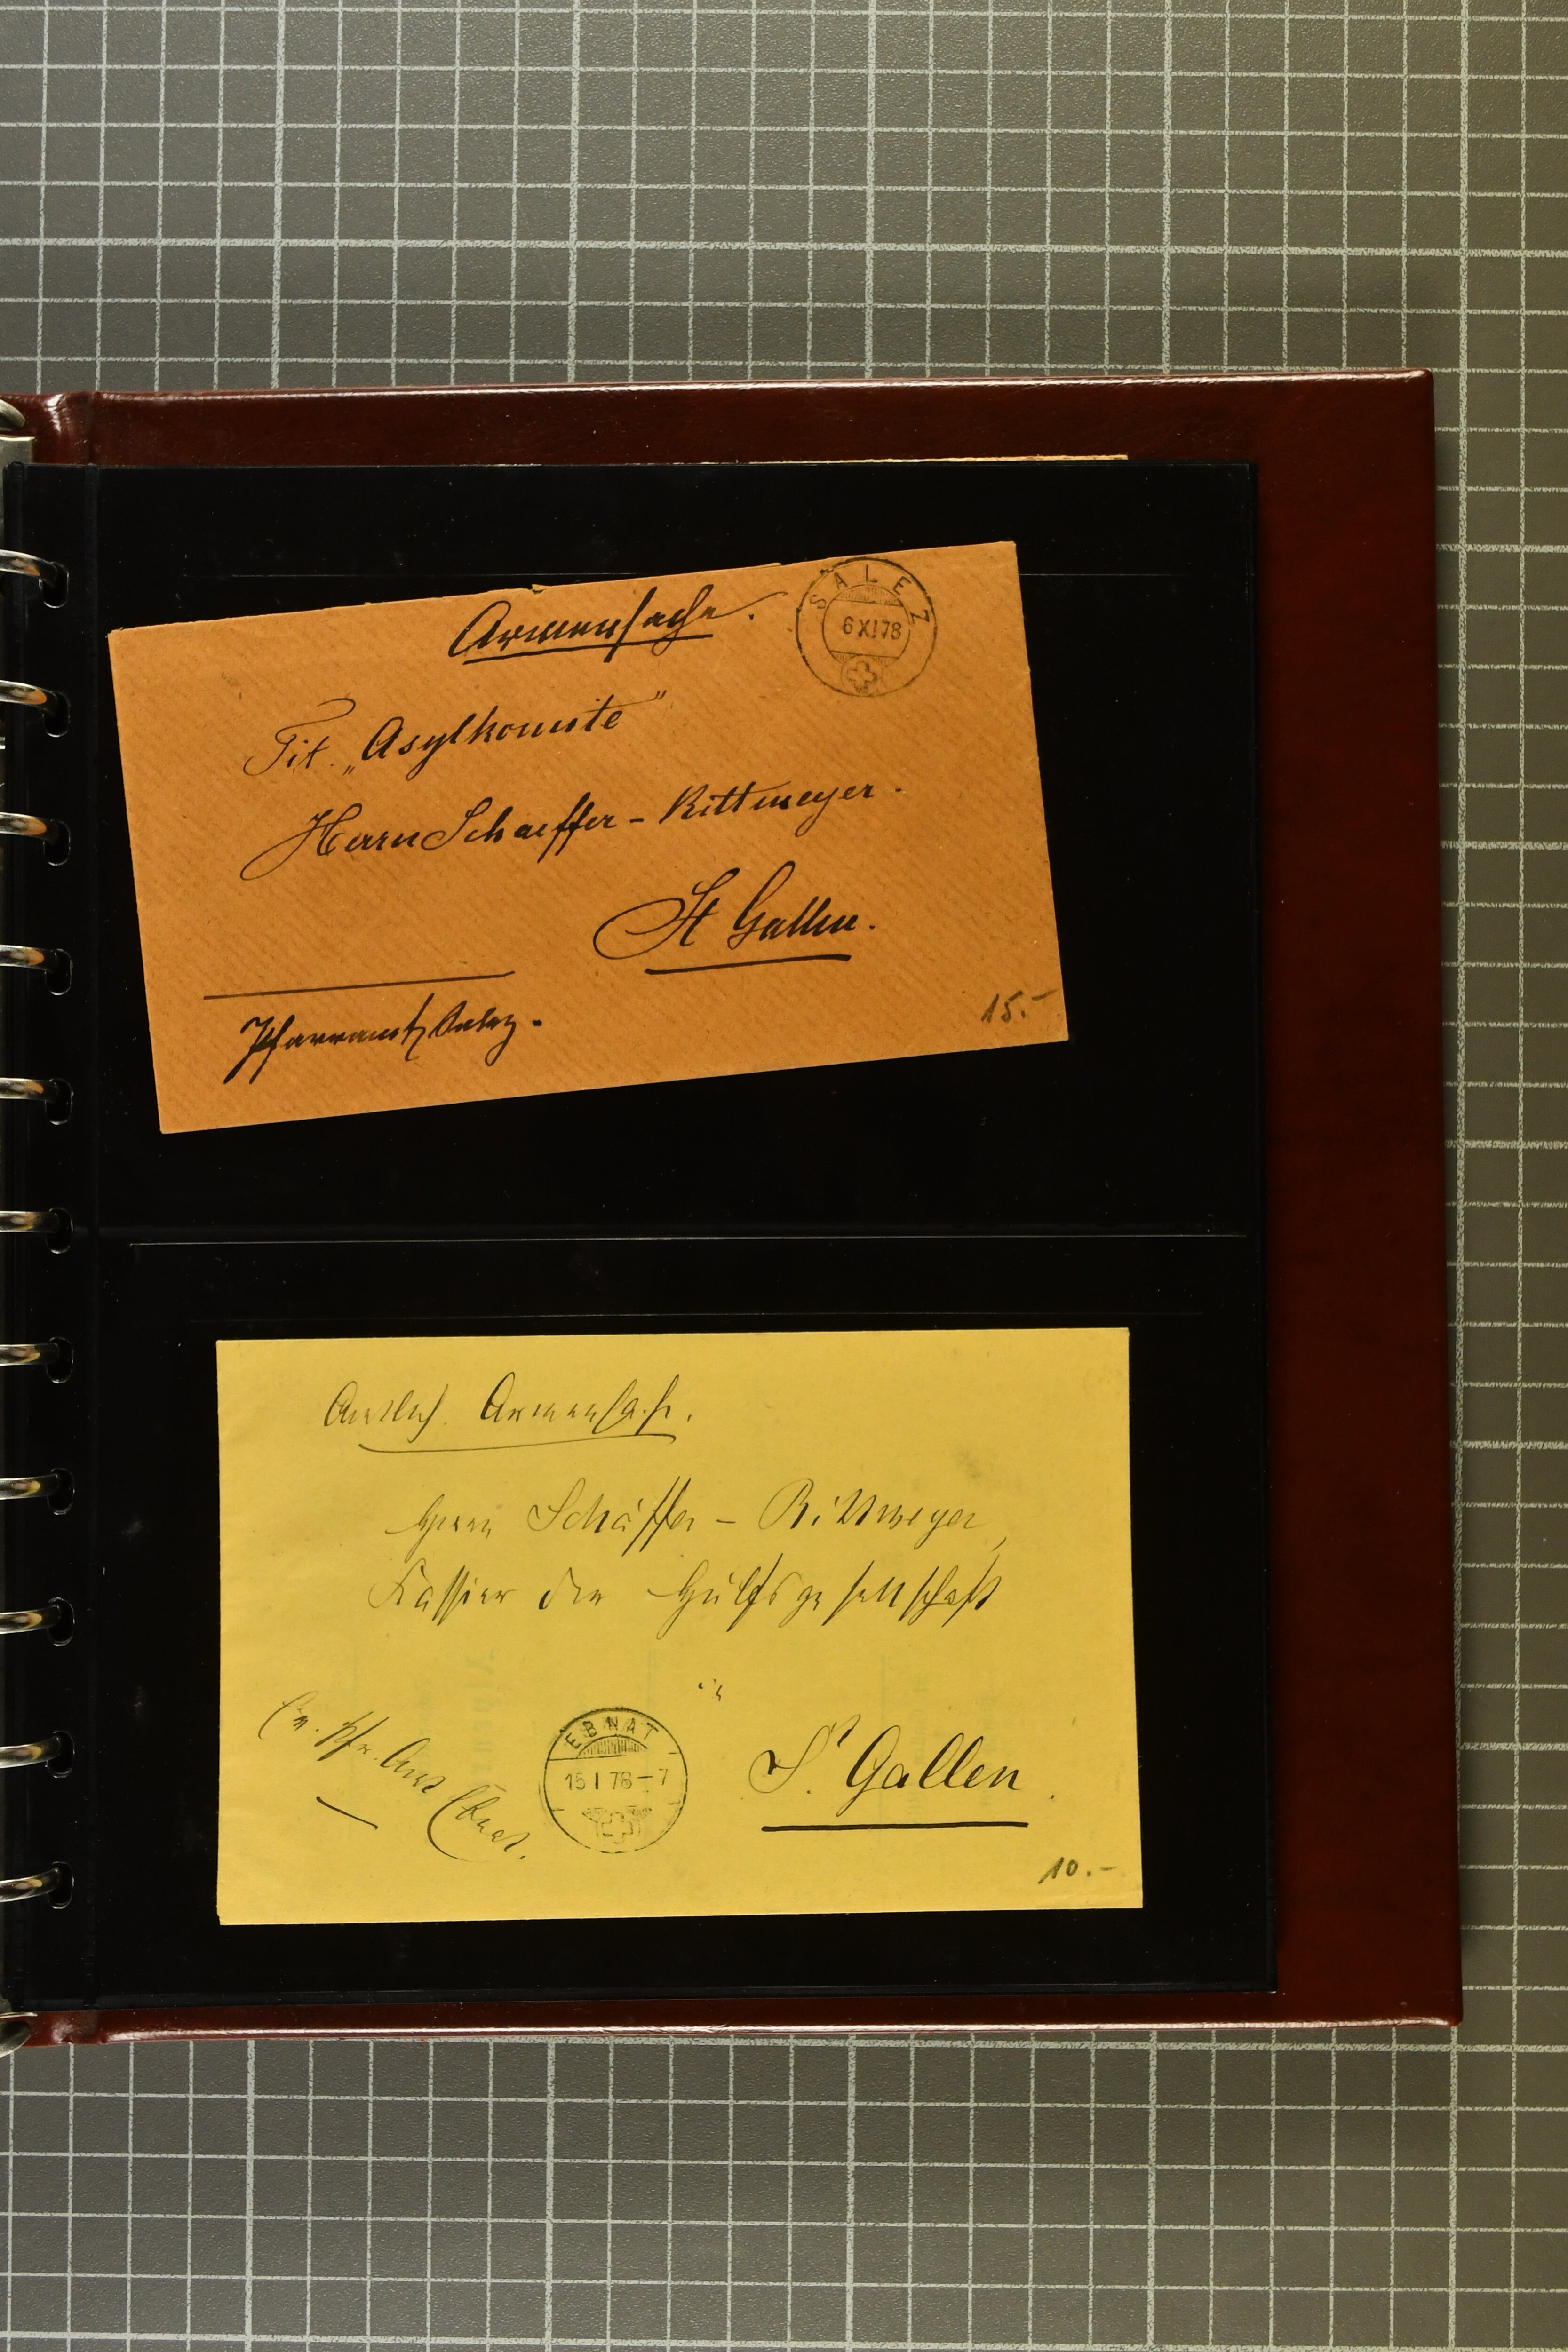 Armensache.
SALEZ
6 XI 78
Tit. „Asylkomite"
Herrn Schaeffer-Rittmeyer.
St Gallen.
Pfarramt Salez.
15.-
Amtlich Armensache.
Herrn Schäffer - Rittmeyer,
Kassier der Hülfsgesellschaft
in
Ev. Pfr. Amt Ebnat.
EBNAT
15 I 78-7
St. Gallen.
10.-